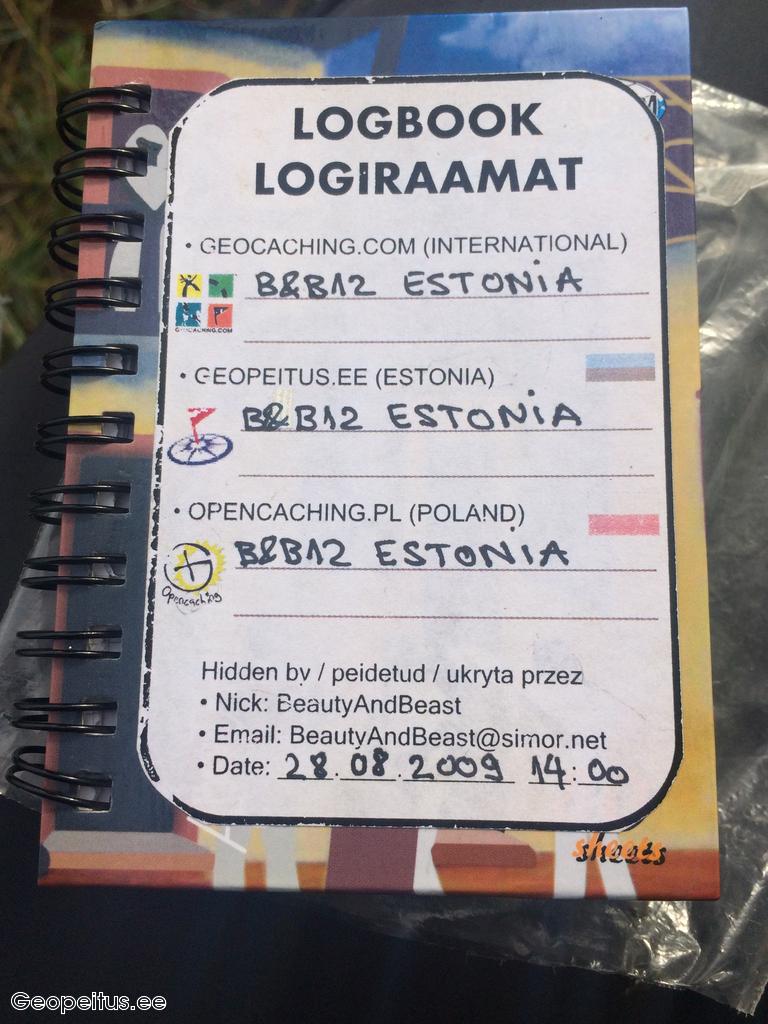 LOGBOOK
LOGIRAAMAT
• GEOCACHING.COM (INTERNATIONAL)
B&B12 ESTONiA
GEOCACHING.COM
• GEOPEITUS.EE (ESTONIA)
B&B12 ESTONiA
• OPENCACHING.PL (POLAND)
B&B12 ESTONiA
Opencaching
Hidden by / peidetud / ukryta przez
• Nick: BeautyAndBeast
• Email: BeautyAndBeast@simor.net
• Date: 28.08.2009 14:00
sheets
Geopeitus.ee